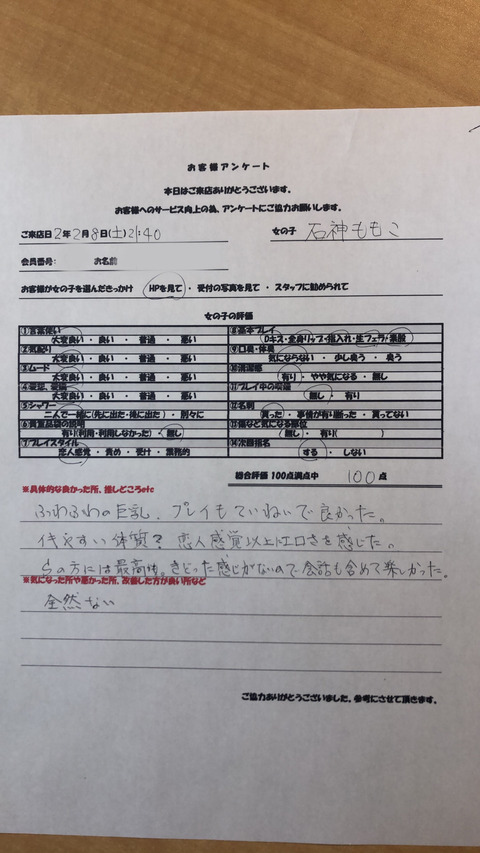 お客様アンケート
本日はご来店ありがとうございます。
お客様へのサービス向上の為、アンケートにご協力お願いします。
ご来店日 2年2月8日(土)21:40 女の子 石神ももこ
会員番号: お名前
お客様が女の子を選んだきっかけ HPを見て・受付の写真を見て・スタッフに勧められて
女の子の評価
①言葉使い ⑧基本プレイ
大変良い・良い・普通・悪い Dキス・全身リップ・指入れ・生フェラ・素股
②気配り ⑨口臭・体臭
大変良い・良い・普通・悪い 気にならない・少し臭う・臭う
③ムード ⑩清潔感
大変良い・良い・普通・悪い 有り・やや気になる・無し
④愛想、愛嬌 ⑪プレイ中の喫煙
大変良い・良い・普通・悪い 無し・有り
⑤シャワー ⑫名刺
二人で一緒に(先に出た・後に出た)・別々に 貰った・事情が有り断った・貰ってない
⑥貴重品袋の説明 ⑬傷など気になる部位
有り(利用・利用しなかった)・無し (無し・有り( )
⑦プレイスタイル ⑭次回指名
恋人感覚・責め・受け・業務的 する・しない
総合評価 100点満点中 100点
※具体的な良かった所、推しどころetc
ふわふわの巨乳、プレイもていねいで良かった。
イキやすい体質？恋人感覚以上にエロさを感じた。
Sの方には最高かも。きどった感じがないので会話も含めて楽しかった。
※気になった所や悪かった所、改善した方が良い所など
全然ない
ご協力ありがとうございました。参考にさせて頂きます。